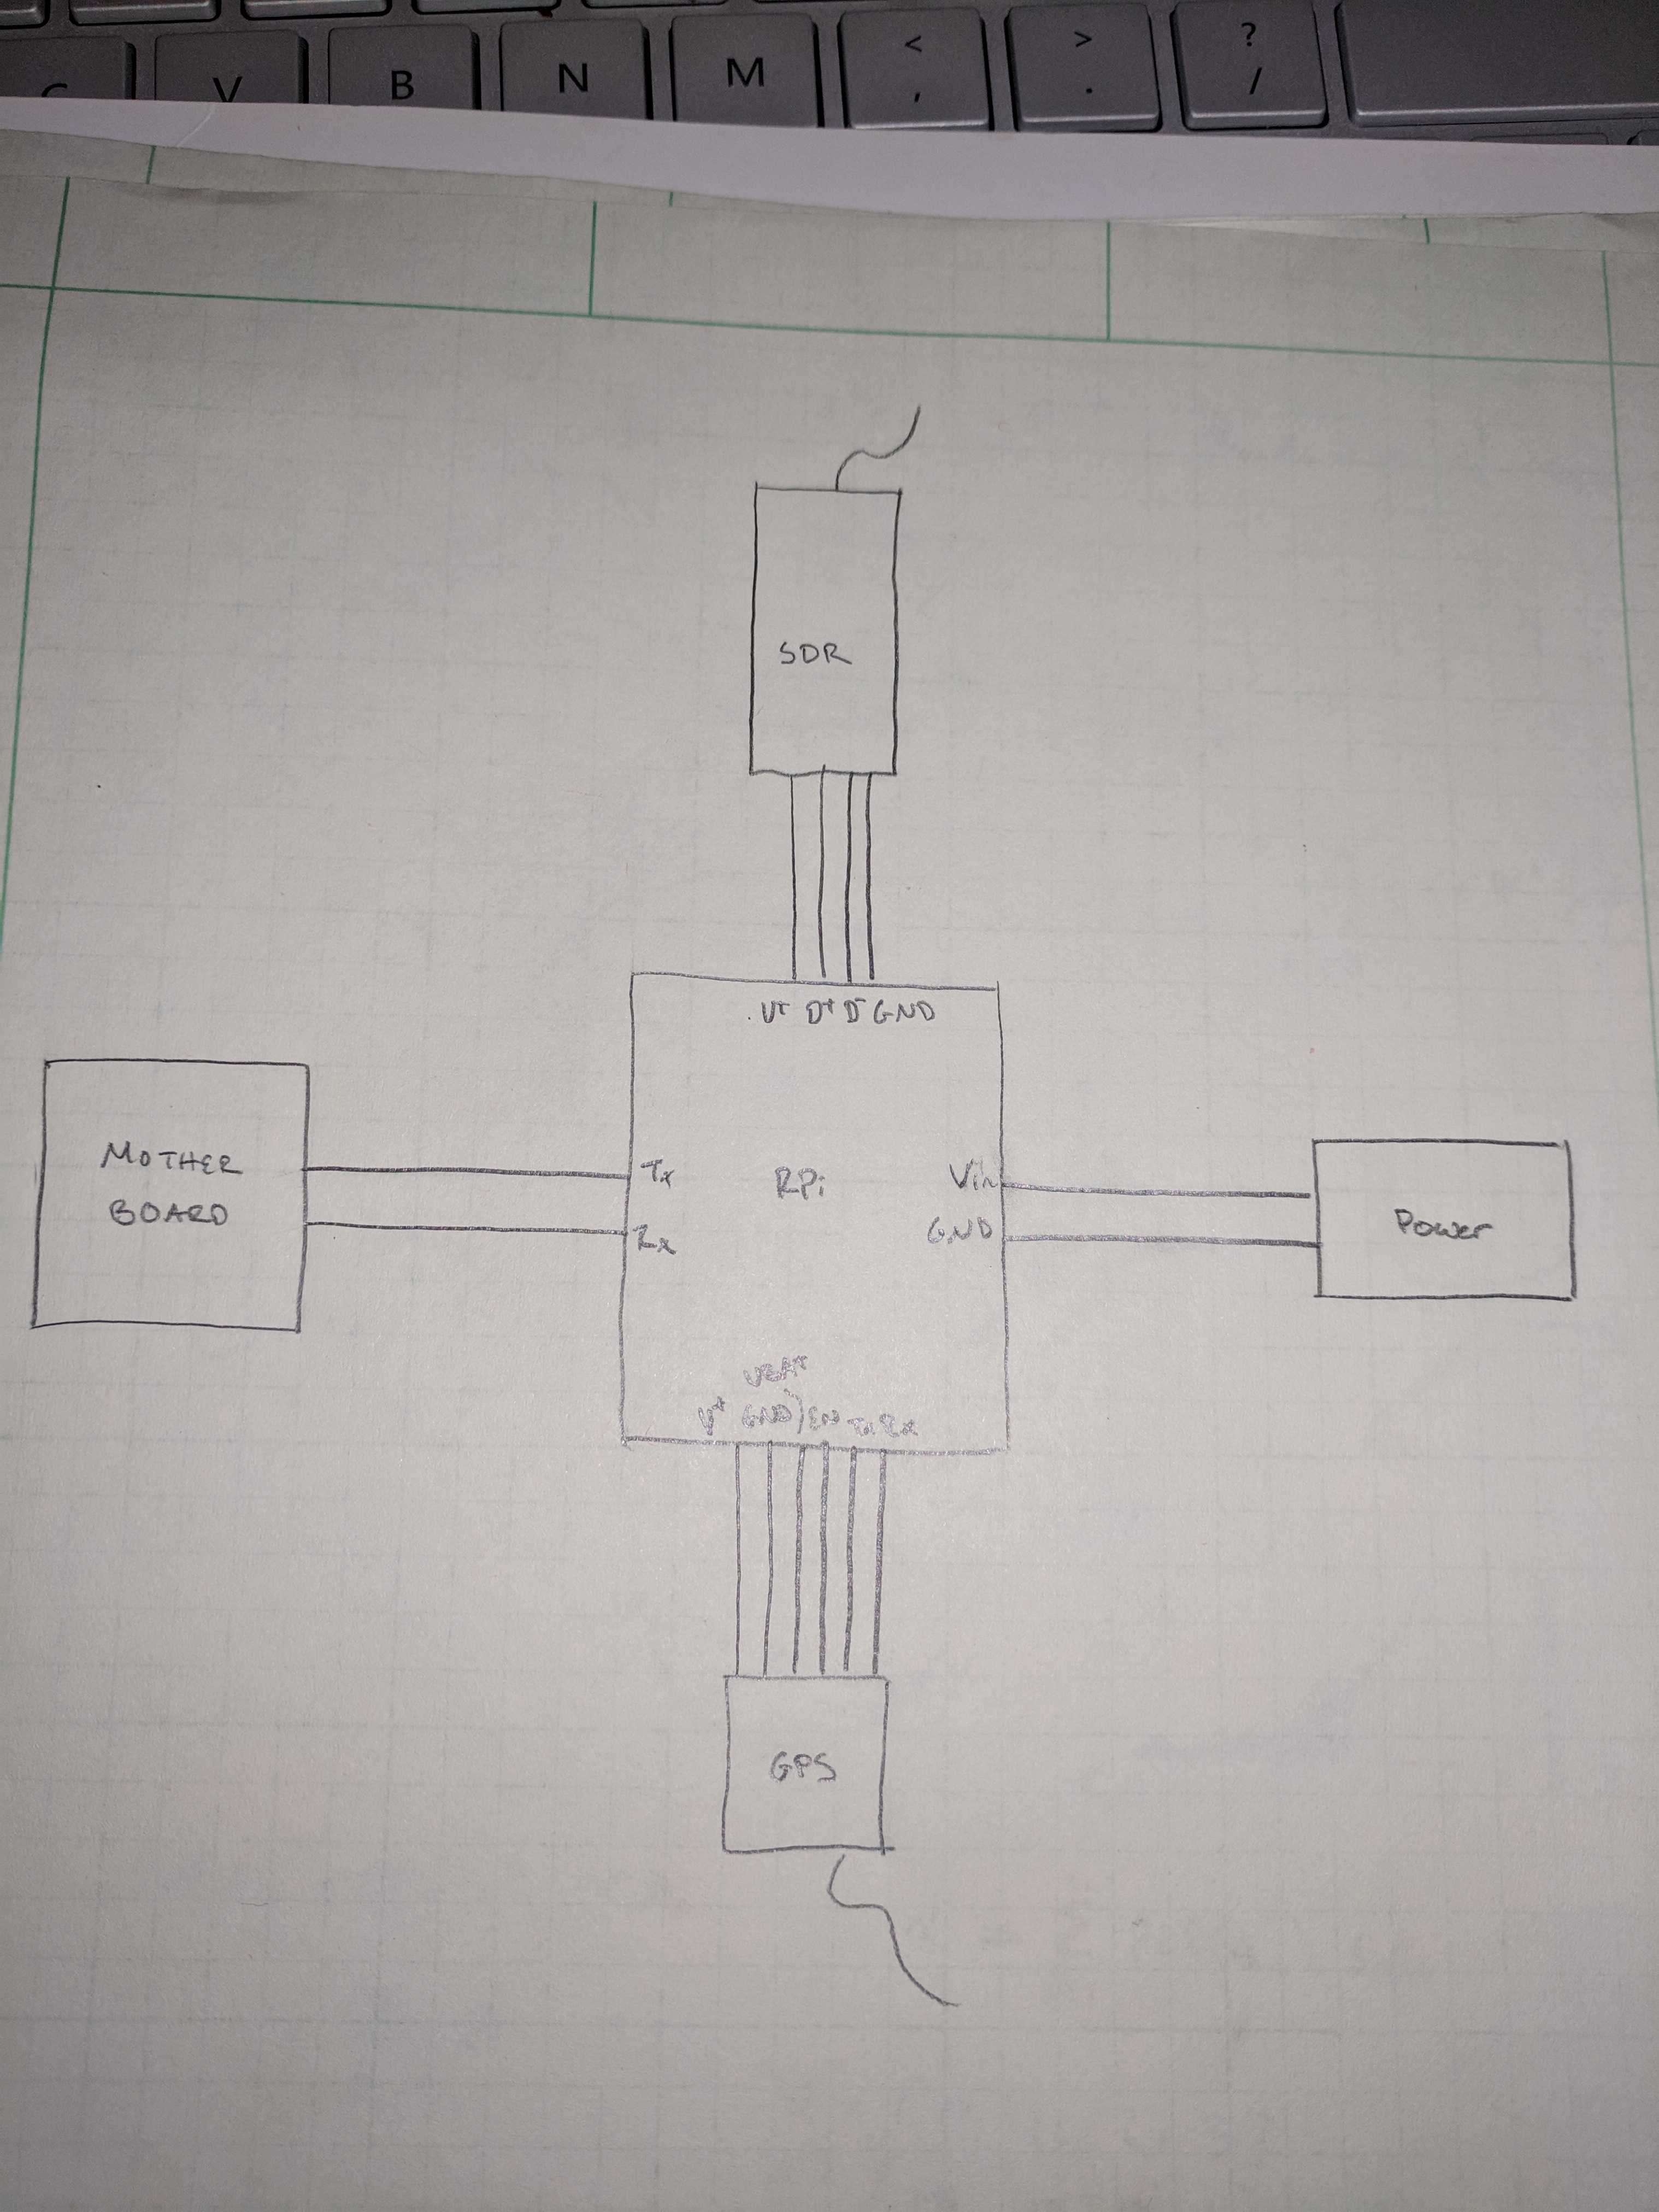 V B N M < , > . ? /
SDR
V+ D+ D- GND
MOTHER
BOARD
Tx
RPi
Vin
Rx
GND
Power
VBAT
V+ GND EN Tx Rx
GPS